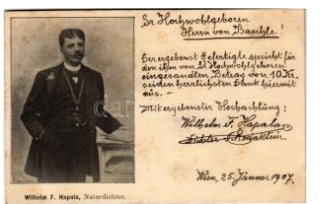 Sr Hochwohlgeboren
Herrn von Baechle!
Der ergebenst Gefertigte spricht für
den ihm von Sr Hochwohlgeboren
eingesandten Betrag von 10 Kr.
seinen herzlichsten Dank hiermit
aus. -
Mit ergebenster Hochachtung:
Wilhelm F. Hapala
Wien, 25. Jänner 1907.
Wilhelm F. Hapala, Naturdichter.